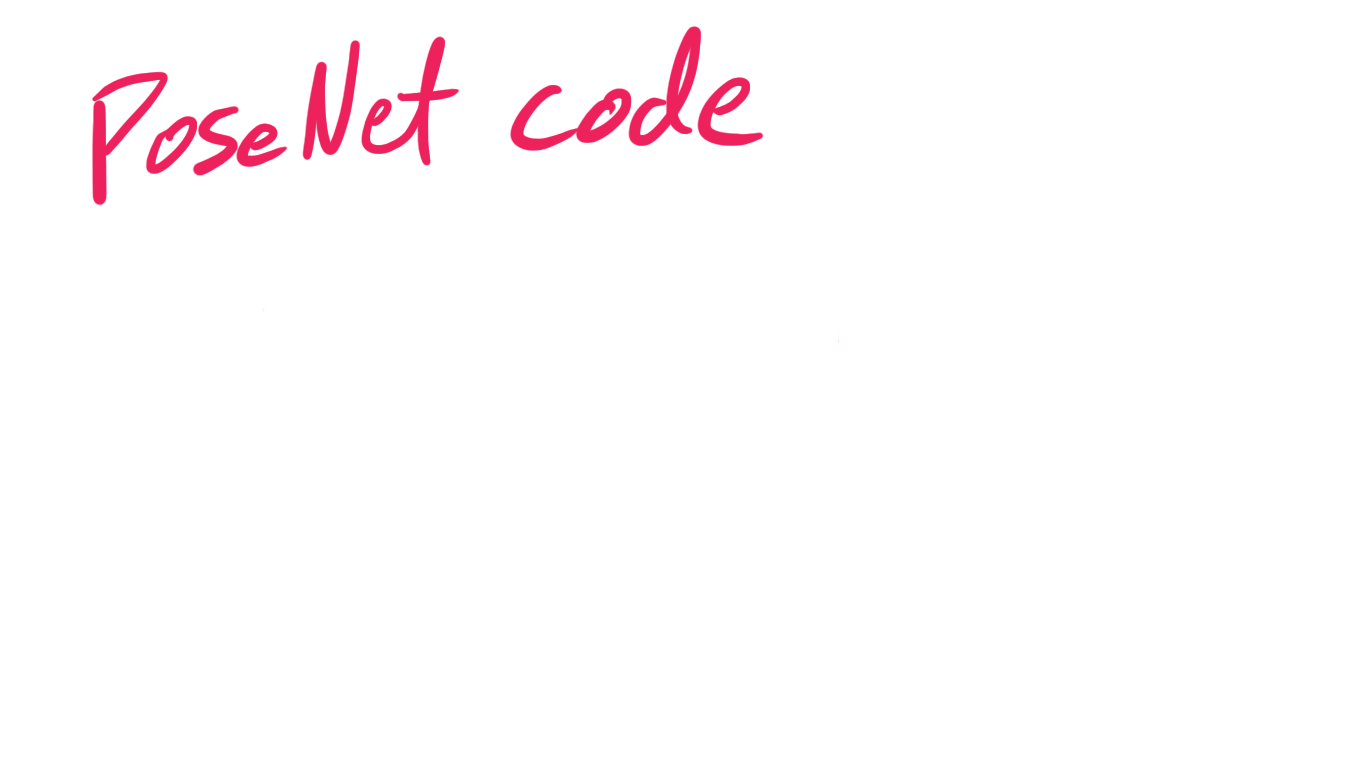 PoseNet code